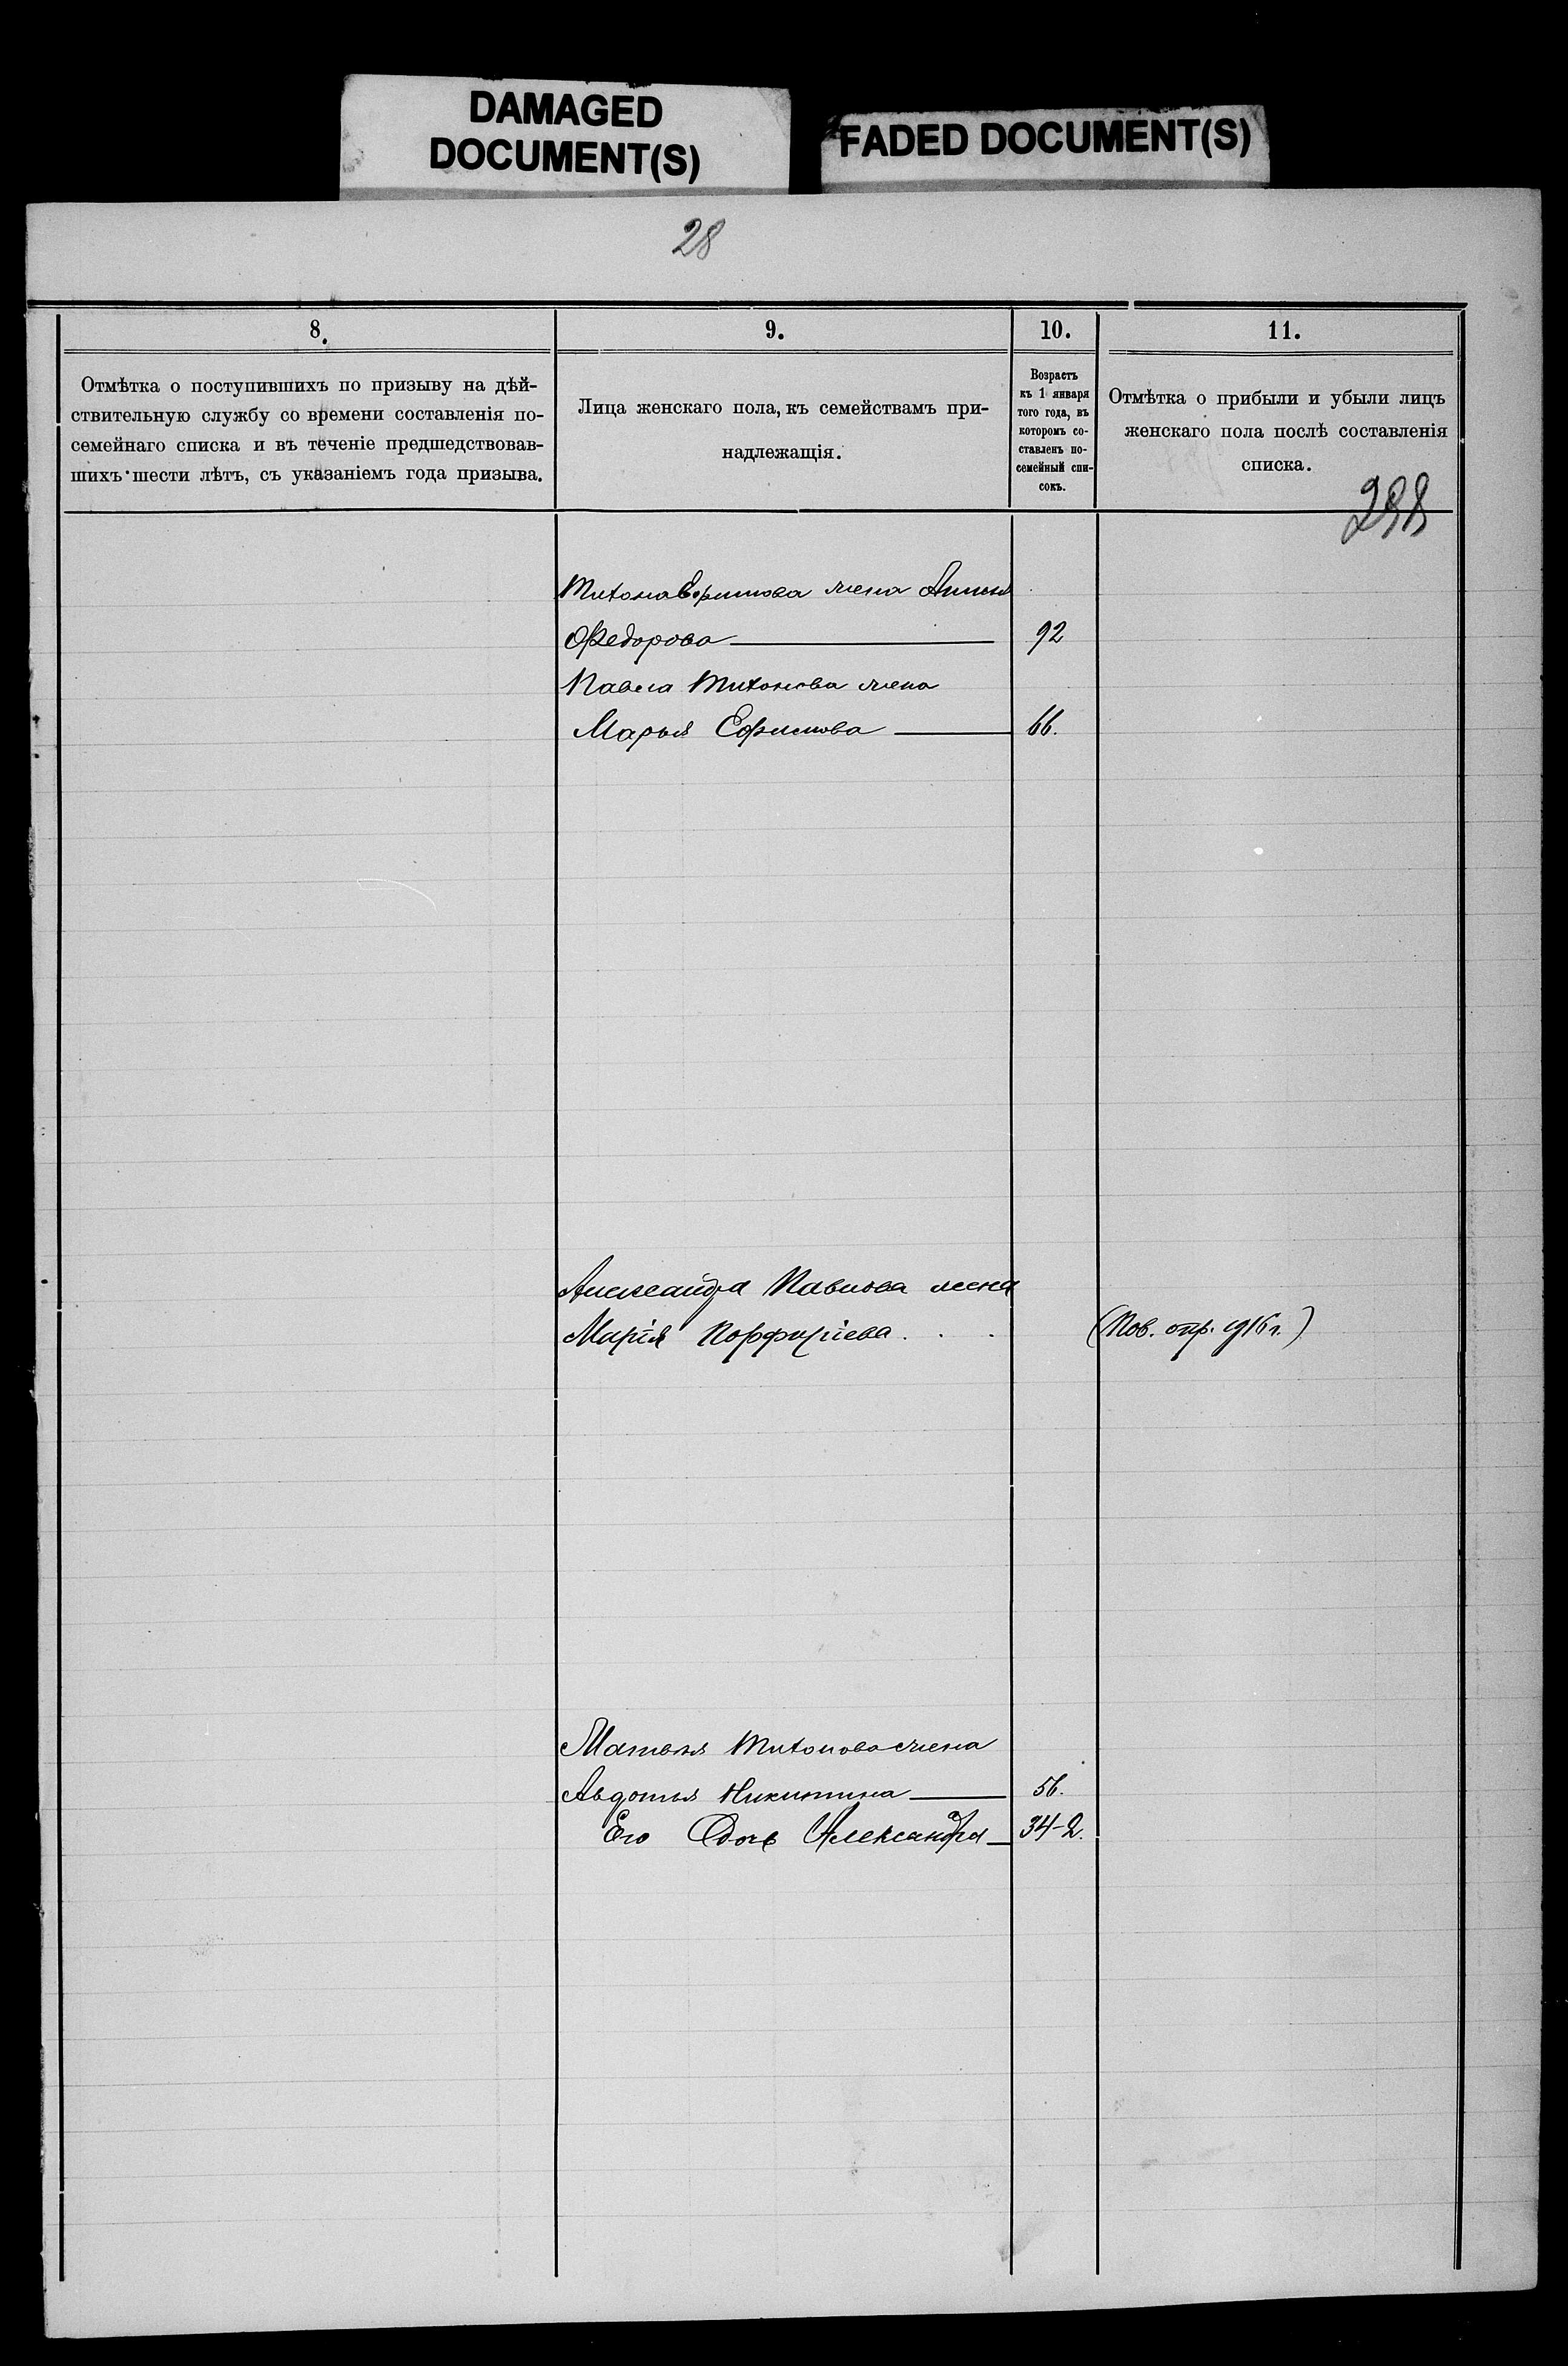 DAMAGED
DOCUMENT(S)
FADED DOCUMENT(S)
28
8.
Отмѣтка о поступившихъ по призыву на дѣй-
ствительную службу со времени составленія по-
семейнаго списка и въ теченіе предшедствовав-
шихъ шести лѣтъ, съ указаніемъ года призыва.
9.
Лица женскаго пола, къ семействамъ при-
надлежащія.
10.
Возрастъ
къ 1 января
того года, въ
которомъ со-
ставленъ по-
семейный спи-
сокъ.
11.
Отмѣтка о прибыли и убыли лицъ
женскаго пола послѣ составленія
списка.
298
Тихона жена
Федорова 92
Павла Тихонова жена
Марья Ефимова 66.
Александра Павлова жена
Марія Порфирiева . . . (Пов. опр. 1916 г.)
Матвѣя Тихонова жена
Авдотья Никитина 56.
Его дочь Александра 34-2.